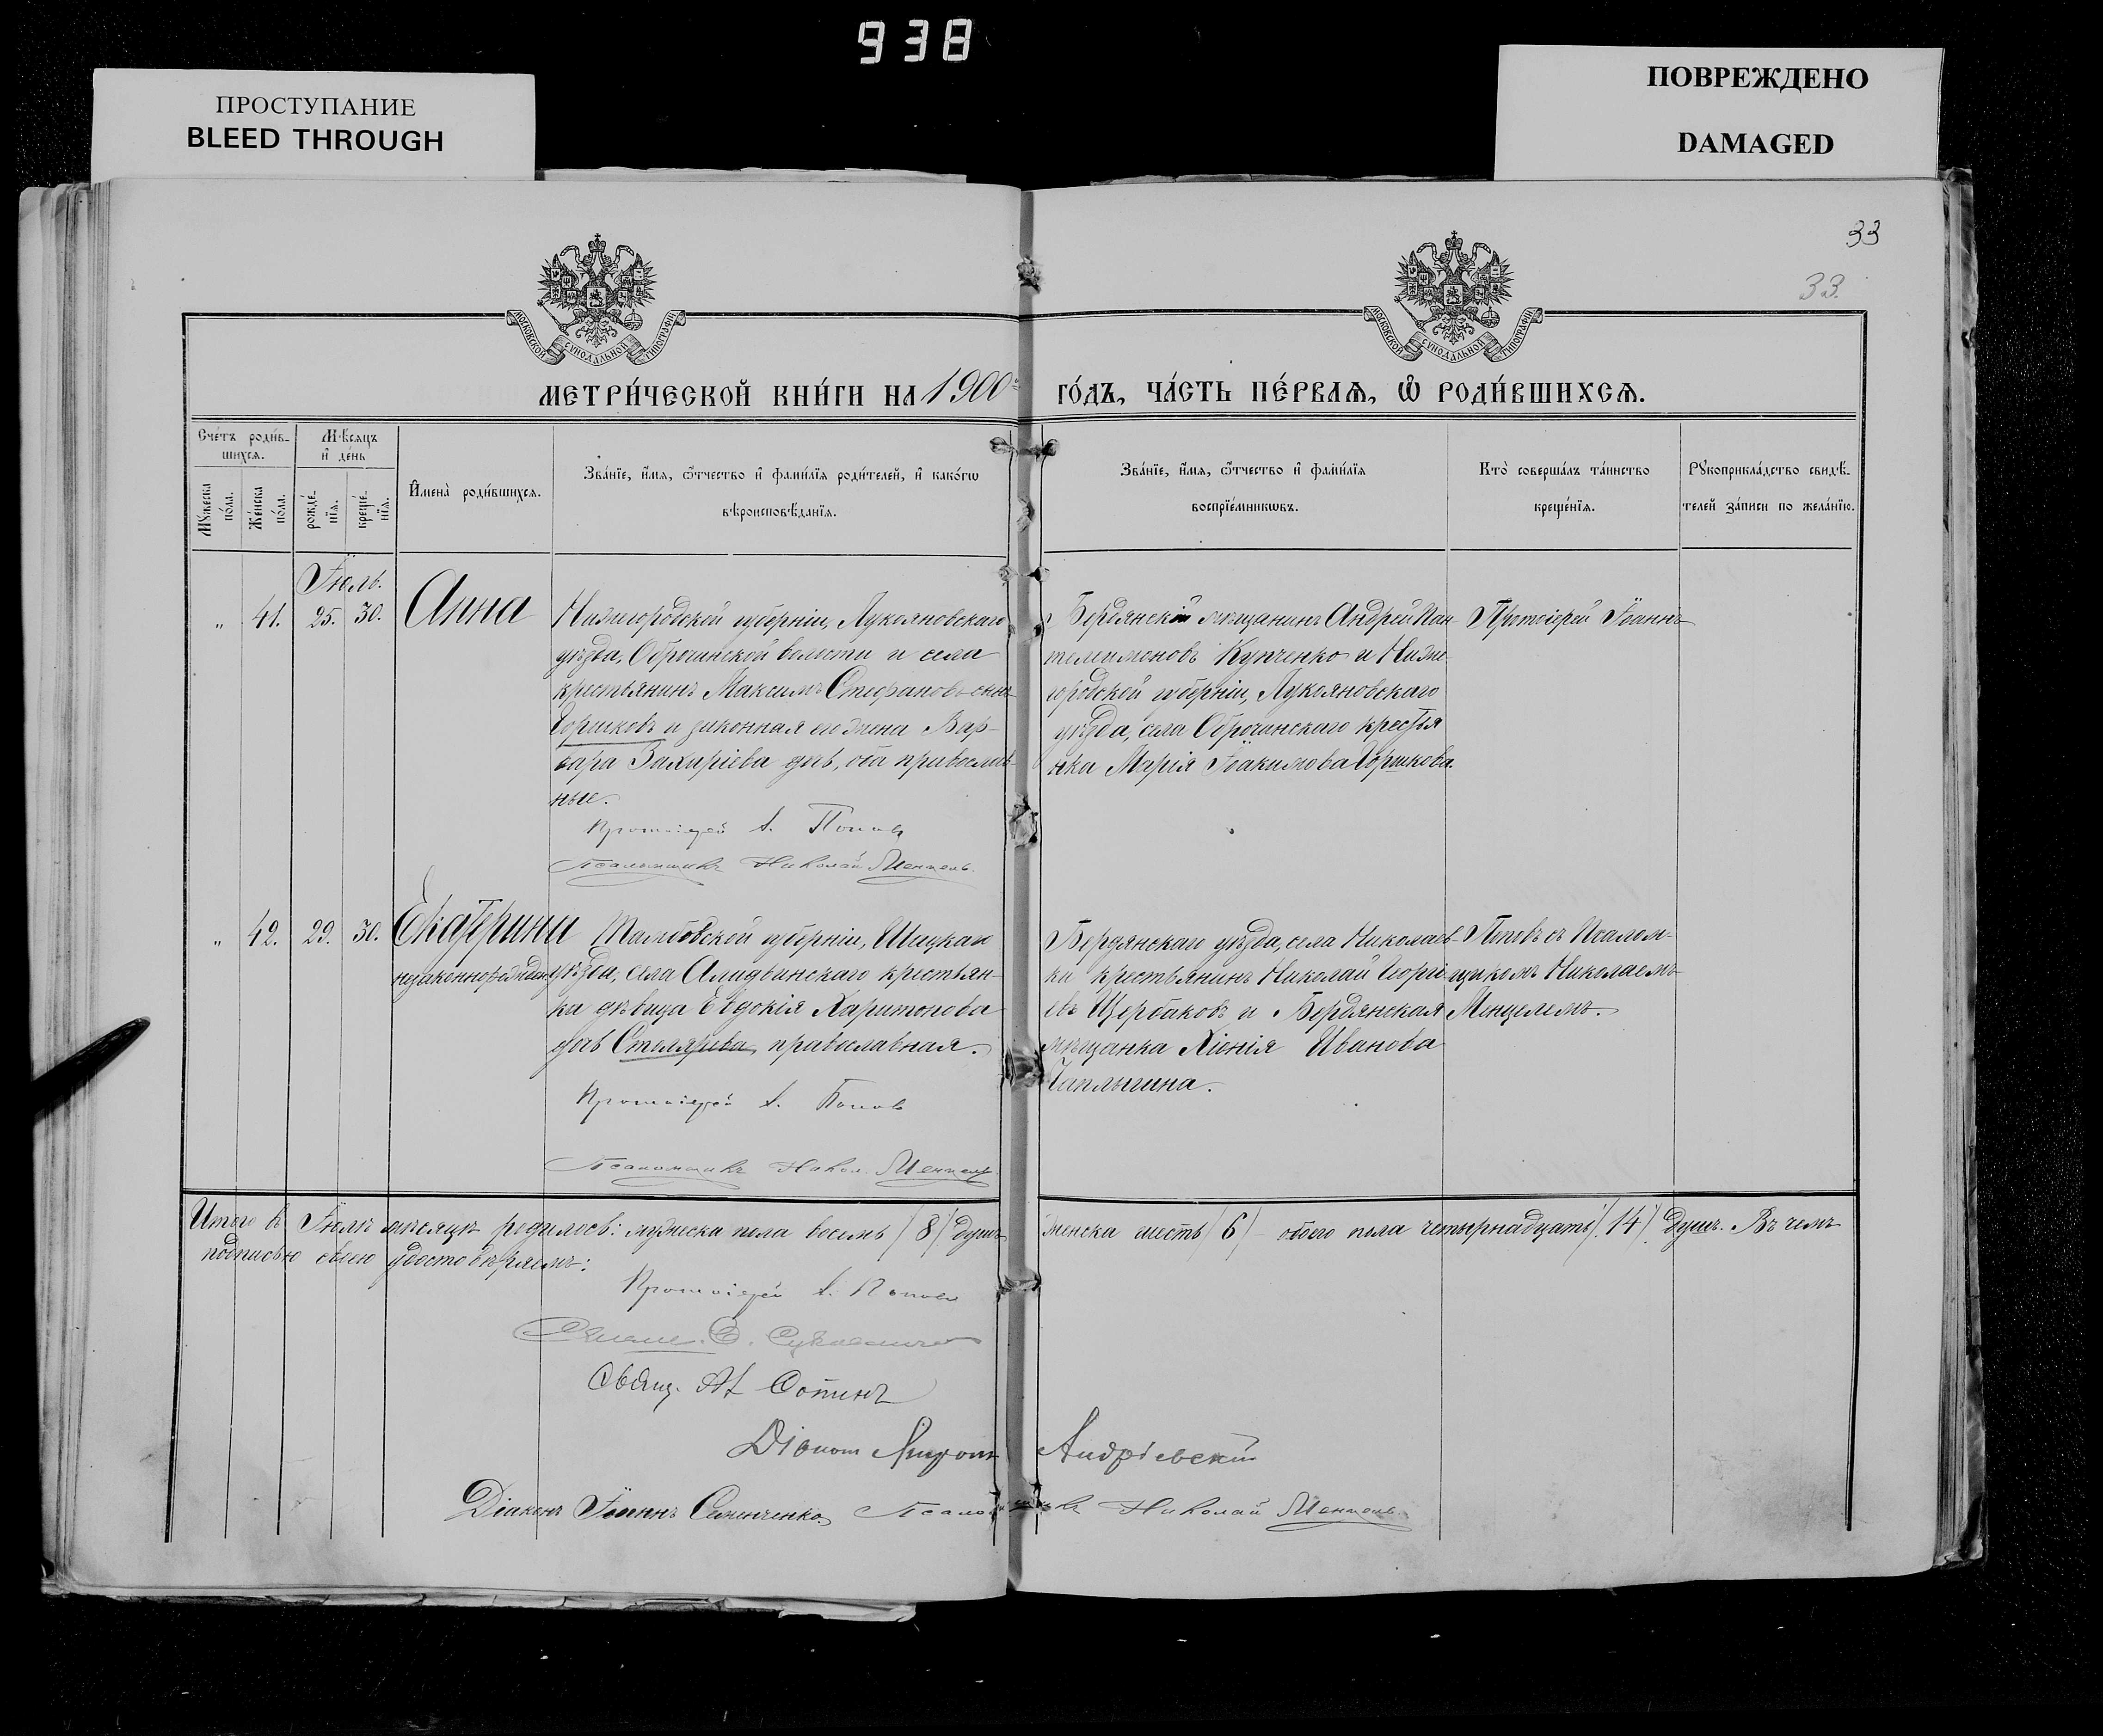 938
ПРОСТУПАНИЕ
BLEED THROUGH
ПОВРЕЖДЕНО
DAMAGED
33
33.
МОСКОВСКОЙ СѴНОДАЛЬНОЙ ТИПОГРАФІИ
МОСКОВСКОЙ СѴНОДАЛЬНОЙ ТИПОГРАФІИ
МЕТРИ́ЧЕСКОЙ КНИ́ГИ НА 1900й ГО́ДЪ, ЧА́СТЬ ПЕ́РВАѦ, Ѡ РОДИ́ВШИХСѦ.
Сче́тъ роди́в-
шихсѧ.
Мѣ́сѧцъ
и҆ де́нь
Мꙋ́жеска
по́ла.
Же́нска
по́ла.
рожде́-
нїѧ.
креще́-
нїѧ.
И҆мена̀ роди́вшихсѧ.
Зва́нїе, и҆́мѧ, ѻ҆́тчество и҆ фами́лїѧ роди́телей, и҆ како́гѡ
вѣроисповѣ́данїѧ.
Зва́нїе, и҆́мѧ, ѻ҆́тчество и҆ фами́лїѧ
воспрїе́мникѡвъ.
Кто̀ соверша́лъ та́инство
креще́нїѧ.
Рꙋкоприкла́дство свидѣ́-
телей за́писи по жела́нїю.
Іюль.
" 41. 25. 30. Анна
Нижегородской губерніи, Лукояновскаго
уѣзда, Оброчинской волости и села
крестьянинъ Максимъ Стефановъ сынъ
Горшковъ и законная его жена Вар-
вара Захаріева дчь, оба православ-
ные.
Протоіерей І. Поповъ
Псаломщикъ Николай Менцель.
Бердянскій мѣщанинъ Андрей Пан
телимоновъ Купченко и Ниже-
городской губерніи, Лукояновскаго
уѣзда, села Оброчинскаго крестья
нка Марія Іоакимова Горшкова.
Протоіерей Іоаннъ
" 42. 29. 30. Екатерина
незаконнорожден.
Тамбовской губерніи, Шацкаго
уѣзда, села крестьян-
ка дѣвица Евдокія Харитонова
дчь Столярова, православная.
Протоіерей І. Поповъ
Псаломщикъ Никол. Менцель
Бердянскаго уѣзда, села Николаев-
ки крестьянинъ Николай Георгі-
евъ Щербаковъ и Бердянская
мѣщанка Ксенія Иванова
Чаплыгина.
Поповъ съ Псалом-
щикомъ Николаемъ
Менцелемъ.
Итого въ Іюлѣ мѣсяцѣ родилось: мужеска пола восемь /8/ душъ женска шесть /6/ обоего пола четырнадцать /14/ душъ. Въ чемъ
подписью своею удостовѣряемъ:
Протоіерей І. Поповъ
Свящ. Сопинъ
Діаконъ Андріевскій
Діаконъ Іоаннъ Семенченко. Псаломщикъ Николай Менцель.